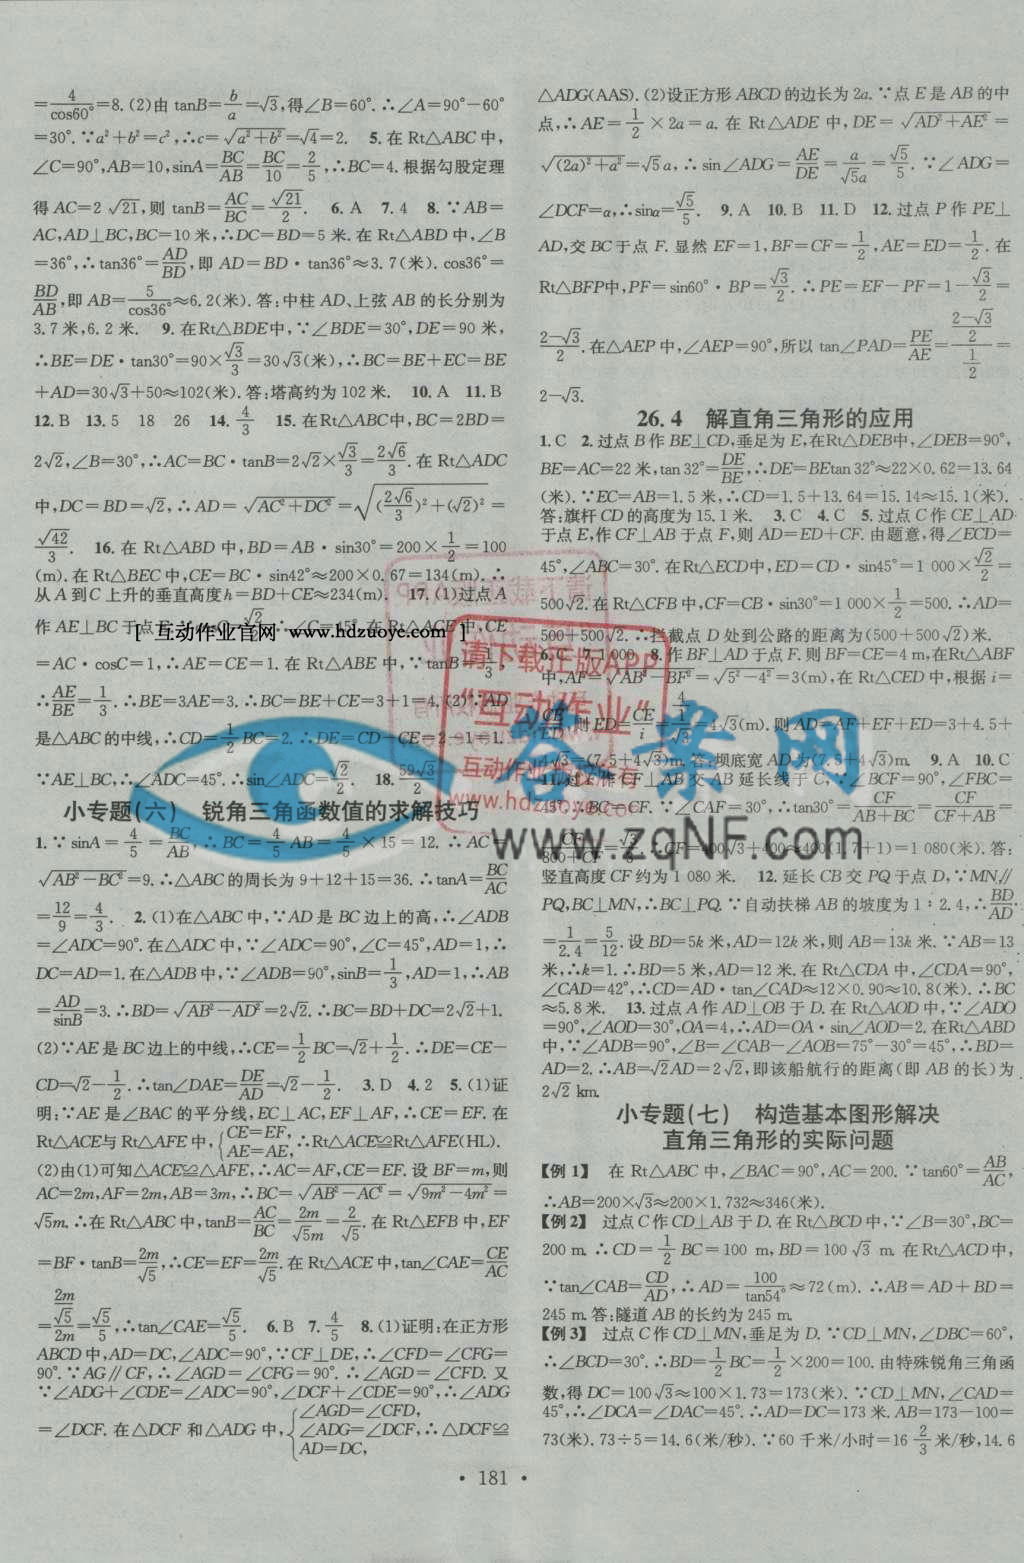 =4/cos60°=8.(2)由 tanB=b/a=√3,得∠B=60°.∴∠A=90°-60°
=30°.∵a²+b²=c²,∴c=√(a²+b²)=√4=2. 5.在 Rt△ABC 中,
∠C=90°,AB=10,sinA=BC/AB=BC/10=2/5,∴BC=4.根据勾股定理
得 AC=2√21,则 tanB=AC/BC=√21/2. 6.A 7.4 8.∵AB=
AC,AD⊥BC,BC=10 米,∴DC=BD=5 米.在 Rt△ABD 中,∠B
=36°,∴tan36°=AD/BD,即 AD=BD·tan36°≈3.7(米).cos36°=
BD/AB,即 AB=5/cos36°≈6.2(米).答:中柱 AD、上弦 AB 的长分别为
3.7 米,6.2 米. 9.在Rt△BDE中,∵∠BDE=30°,DE=90 米,
∴BE=DE·tan30°=90×√3/3=30√3(米),∴BC=BE+EC=BE
+AD=30√3+50≈102(米).答:塔高约为 102 米. 10.A 11.B
12.B 13.5 18 26 14.4/3 15.在Rt△ABC中,BC=2BD=
2√2,∠B=30°,∴AC=BC·tanB=2√2×√3/3=2√6/3.在Rt△ADC
中,DC=BD=√2,∴AD=√(AC²+DC²)=√((2√6/3)²+(√2)²)=
√42/3. 16.在 Rt△ABD 中,BD=AB·sin30°=200×1/2=100
(m).在 Rt△BEC 中,CE=BC·sin42°≈200×0.67=134(m).∴
从 A 到 C 上升的垂直高度h=BD+CE≈234(m). 17.(1)过点 A
作 AE⊥BC 于点E [ 互动作业官网 www.hdzuoyc.com ] ∴∠C=45°.在Rt△ACE 中,CE
=AC·cosC=1,∴AE=CE=1.在 Rt△ABE 中,∵tanB=1/3,
∴AE/BE=1/3.∴BE=3AE=3.∴BC=BE+CE=3+1=4.(2)∵AD
是△ABC 的中线,∴CD=1/2BC=2.∴DE=CD-CE=2-1=1.
∵AE⊥BC,∴∠ADC=45°.∴sin∠ADC=√2/2. 18.59√3/2
小专题(六) 锐角三角函数值的求解技巧
1.∵sinA=4/5=BC/AB,∴BC=4/5AB=4/5×15=12.∴AC=
√(AB²-BC²)=9.∴△ABC 的周长为 9+12+15=36.∴tanA=BC/AC
=12/9=4/3. 2.(1)在△ABC 中,∵AD 是 BC 边上的高,∴∠ADB
=∠ADC=90°.在△ADC 中,∵∠ADC=90°,∠C=45°,AD=1,∴
DC=AD=1.在△ADB 中,∵∠ADB=90°,sinB=1/3,AD=1,∴AB
=AD/sinB=3.∴BD=√(AB²-AD²)=2√2.∴BC=BD+DC=2√2+1.
(2)∵AE 是BC 边上的中线,∴CE=1/2BC=√2+1/2.∴DE=CE-
CD=√2-1/2.∴tan∠DAE=DE/AD=√2-1/2. 3.D 4.2 5.(1)证
明:∵AE 是∠BAC 的平分线,EC⊥AC,EF⊥AF,∴CE=EF.在
Rt△ACE与 Rt△AFE 中,{CE=EF, AE=AE,∴Rt△ACE≌Rt△AFE(HL).
(2)由(1)可知△ACE≌△AFE,∴AC=AF,CE=EF.设 BF=m,则
AC=2m,AF=2m,AB=3m,∴BC=√(AB²-AC²)=√(9m²-4m²)=
√5m.∴在 Rt△ABC 中,tanB=AC/BC=2m/√5m=2/√5.在 Rt△EFB 中,EF
=BF·tanB=2m/√5,∴CE=EF=2m/√5.在 Rt△ACE 中,tan∠CAE=CE/AC
=(2m/√5)/2m=√5/5,∴tan∠CAE=√5/5. 6.B 7.4/5 8.(1)证明:在正方形
ABCD 中,AD=DC,∠ADC=90°,∵CF⊥DE,∴∠CFD=∠CFG=
90°.∵AG∥CF,∴∠AGD=∠CFG=90°.∴∠AGD=∠CFD.又
∵∠ADG+∠CDE=∠ADC=90°,∠DCF+∠CDE=90°,∴∠ADG
=∠DCF.在△DCF 和△ADG 中,{∠AGD=∠CFD, ∠ADG=∠DCF, AD=DC,∴△DCF≌
△ADG(AAS).(2)设正方形 ABCD 的边长为 2a.∵点 E 是 AB 的中
点,∴AE=1/2×2a=a.在 Rt△ADE 中,DE=√(AD²+AE²)=
√((2a)²+a²)=√5a,∴sin∠ADG=AE/DE=a/√5a=√5/5.∵∠ADG=
∠DCF=α,∴sinα=√5/5. 9.A 10.B 11.D 12.过点 P 作 PE⊥
AD,交 BC 于点 F.显然 EF=1,BF=CF=1/2,AE=ED=1/2.在
Rt△BFP中,PF=sin60°·BP=√3/2.∴PE=EF-PF=1-√3/2=
(2-√3)/2.在△AEP 中,∠AEP=90°,所以 tan∠PAD=PE/AE=((2-√3)/2)/(1/2)=
2-√3.
26.4 解直角三角形的应用
1.C 2.过点 B 作 BE⊥CD,垂足为 E,在Rt△DEB中,∠DEB=90°,
BE=AC=22 米,tan 32°=DE/BE,∴DE=BEtan 32°≈22×0.62=13.64
(米).∵EC=AB=1.5 米,∴CD=1.5+13.64=15.14≈15.1(米).
答:旗杆CD的高度为 15.1 米. 3.C 4.C 5.过点 C 作 CE⊥AD
于点 E,作 CF⊥AB 于点 F,则 AD=ED+CF.由题意,得∠ECD=
45°,∠ABC=30°.在 Rt△ECD中,ED=CD·sin45°=1 000×√2/2=
500√2.在 Rt△CFB 中,CF=CB·sin30°=1 000×1/2=500.∴AD=
500+500√2.∴拦截点 D 处到公路的距离为(500+500√2)米.
6.C 7.1 000 8.作 BF⊥AD于点 F.则 BF=CE=4 m,在Rt△ABF
中,AF=√(AB²-BF²)=√(5²-4²)=3(m),在 Rt△CED 中,根据 i=
CE/ED,则 ED=CE/i=4/(1/√3)=4√3(m).则 AD=AF+EF+ED=3+4.5+
4√3=(7.5+4√3)m.答:坝底宽 AD 为(7.5+4√3)m. 9.A 10.C
11.过F 作CF⊥AB 交 AB 延长线于 C,∵∠BCF=90°,∠FBC=
45°,∴BC=CF.∵∠CAF=30°,∴tan30°=CF/(AB+BC)=CF/(CF+AB)=
CF/(800+CF) CF=400√3+400≈400(1.7+1)=1 080(米).答:
竖直高度 CF 约为 1 080 米. 12.延长 CB 交 PQ 于点 D,∵MN∥
PQ,BC⊥MN,∴BC⊥PQ.∵自动扶梯 AB 的坡度为 1∶2.4,∴BD/AD
=1/2.4=5/12.设 BD=5k 米,AD=12k 米,则 AB=13k 米.∵AB=13
米,∴k=1.∴BD=5 米,AD=12 米.在 Rt△CDA 中,∠CDA=90°,
∠CAD=42°,∴CD=AD·tan∠CAD≈12×0.90≈10.8(米).∴BC
≈5.8 米. 13.过点 A 作 AD⊥OB 于 D.在 Rt△AOD 中,∵∠ADO
=90°,∠AOD=30°,OA=4,∴AD=OA·sin∠AOD=2.在Rt△ABD
中,∵∠ADB=90°,∠B=∠CAB-∠AOB=75°-30°=45°,∴BD=
AD=2.∴AB=√2AD=2√2,即该船航行的距离(即 AB 的长)为
2√2 km.
小专题(七) 构造基本图形解决
直角三角形的实际问题
【例 1】 在 Rt△ABC 中,∠BAC=90°,AC=200.∵tan60°=AB/AC,
∴AB=200×√3≈200×1.732≈346(米).
【例 2】 过点 C 作 CD⊥AB 于 D.在 Rt△BCD 中,∵∠B=30°,BC=
200 m.∴CD=1/2BC=100 m,BD=100√3 m.在 Rt△ACD中,
∵tan∠CAB=CD/AD,∴AD=100/tan54°≈72(m).∴AB=AD+BD=
245 m.答:隧道 AB 的长约为 245 m.
【例 3】 过点 C 作 CD⊥MN,垂足为 D.∵CD⊥MN,∠DBC=60°,
∴∠BCD=30°.∴BD=1/2BC=1/2×200=100.由特殊锐角三角函
数,得 DC=100√3≈100×1.73=173(米).∵CD⊥MN,∠CAD=
45°,∴∠DCA=∠DAC=45°.∴AD=DC=173 米.AB=173-100=
73(米).73÷5=14.6(米/秒).∵60 千米/小时=16 2/3 米/秒,14.6
请下载正版APP
"互动作业"
互动作业 所有
www.hdzuoyc.com
答案网
www.zqNF.com
· 181 ·